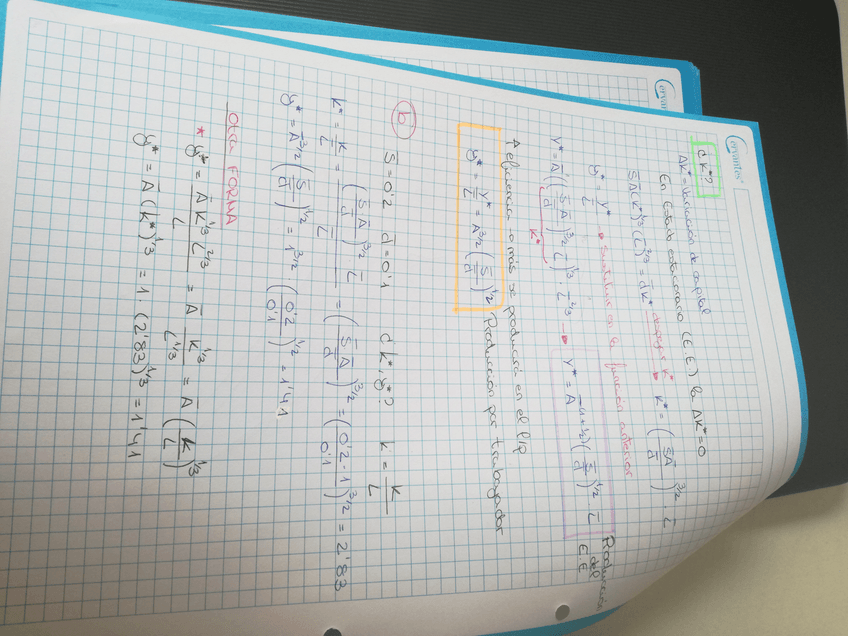 Cervantes
Cervantes
¿K*?
ΔK* = Variación de capital
En Estado estacionario (E.E) la ΔK* = 0
S̄Ā(K*)^1/3 (L̄)^2/3 = d̄K* despejar K* → K* = (S̄Ā/d̄)^3/2 · L̄
y* = Y*/L → sustituir en la función anterior
Y* = Ā((S̄Ā/d̄)^3/2 · L̄)^1/3 · L̄^2/3 → Y* = Ā^(1+1/2) (S̄/d̄)^1/2 · L̄ Producción del E.E
K*
A eficiencia → más se producirá en el l/p
y* = Y*/L̄ = A^3/2 (S̄/d̄)^1/2 Producción por trabajador
b) S = 0'2 d̄ = 0'1 ¿k*, y*? k = K/L
k* = K/L̄ = (S̄Ā/d̄)^3/2 · L̄ / L̄ = (S̄Ā/d̄)^3/2 = (0'2·1/0'1)^3/2 = 2'83
y* = Ā^3/2 (S̄/d̄)^1/2 = 1^3/2 (0'2/0'1)^1/2 = 1'41
Otra FORMA
* y* = Ā K^1/3 L^2/3 / L = Ā K^1/3 / L^1/3 = Ā (K/L)^1/3
y* = Ā (k*)^1/3 = 1 · (2'83)^1/3 = 1'41